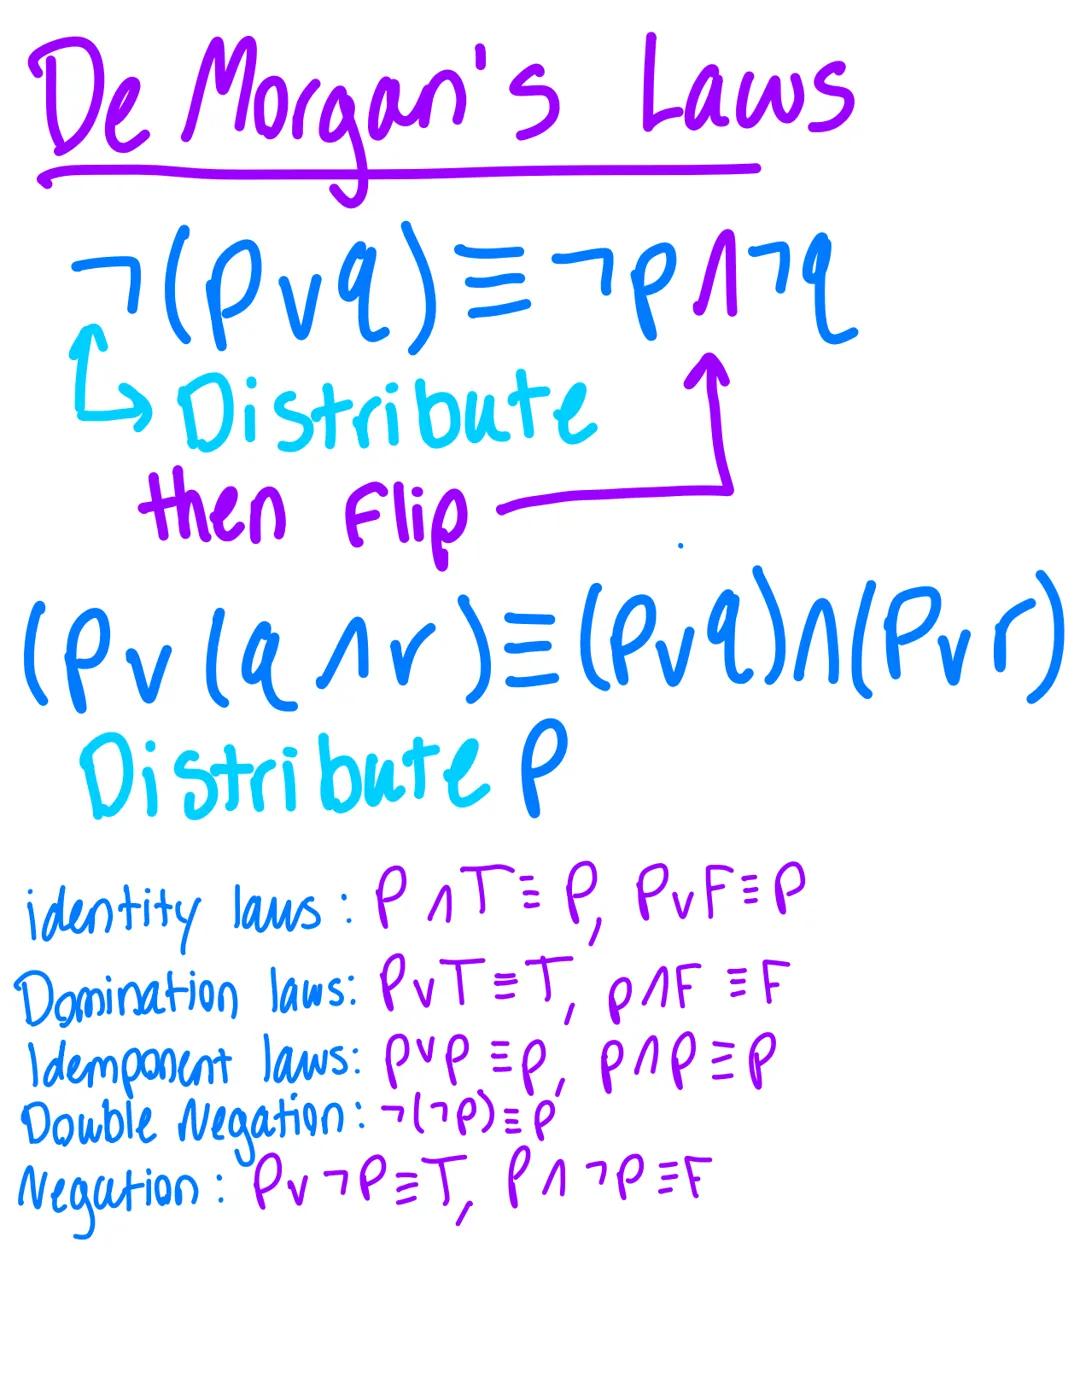 De Morgan's Laws
¬(p∨q)≡¬p∧¬q
Distribute
then Flip
(p∨(q∧r)≡(p∨q)∧(p∨r)
Distribute p
identity laws: P∧T≡P, P∨F≡P
Domination laws: P∨T≡T, p∧F≡F
Idemponent laws: p∨p≡p, p∧p≡p
Double Negation: ¬(¬p)≡p
Negation: P∨¬P≡T, P∧¬P≡F